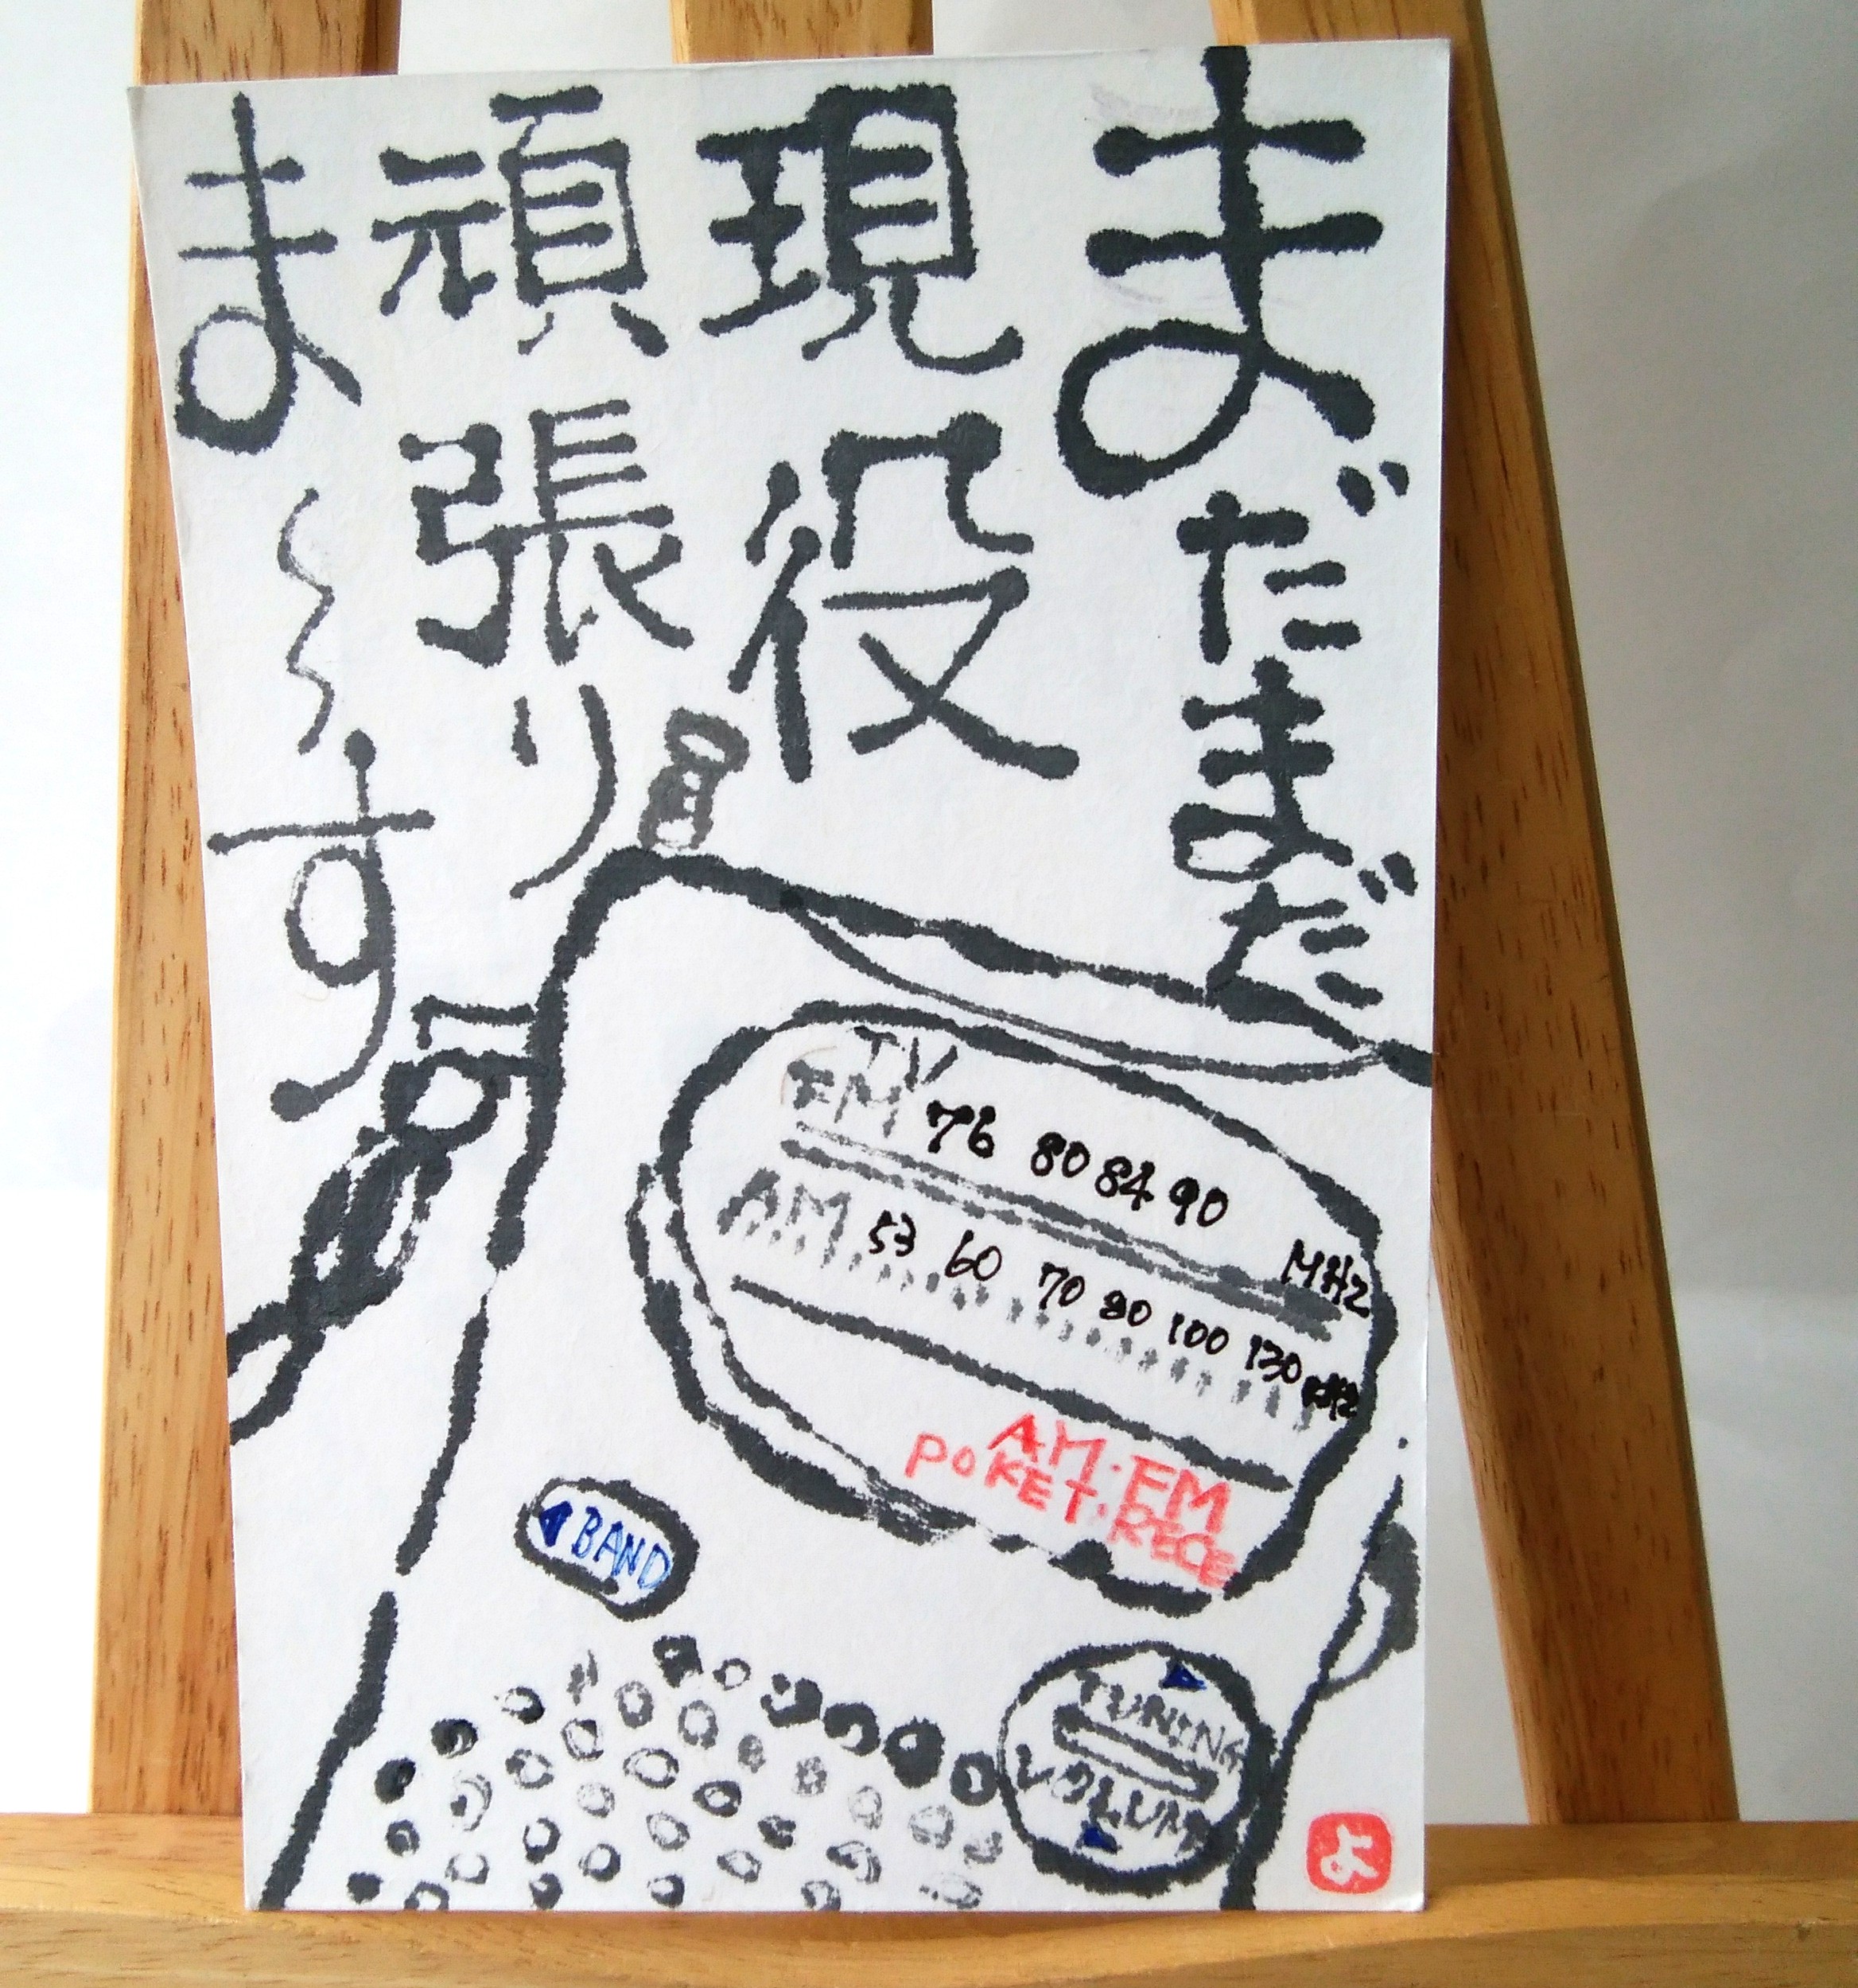 まだまだ
現役
頑張り
ま～す
TV
FM 76 80 84 90 MHz
AM 53 60 70 80 100 130 KHz
AM・FM
POKET・RECE
BAND
TUNING
VOLUME
よ